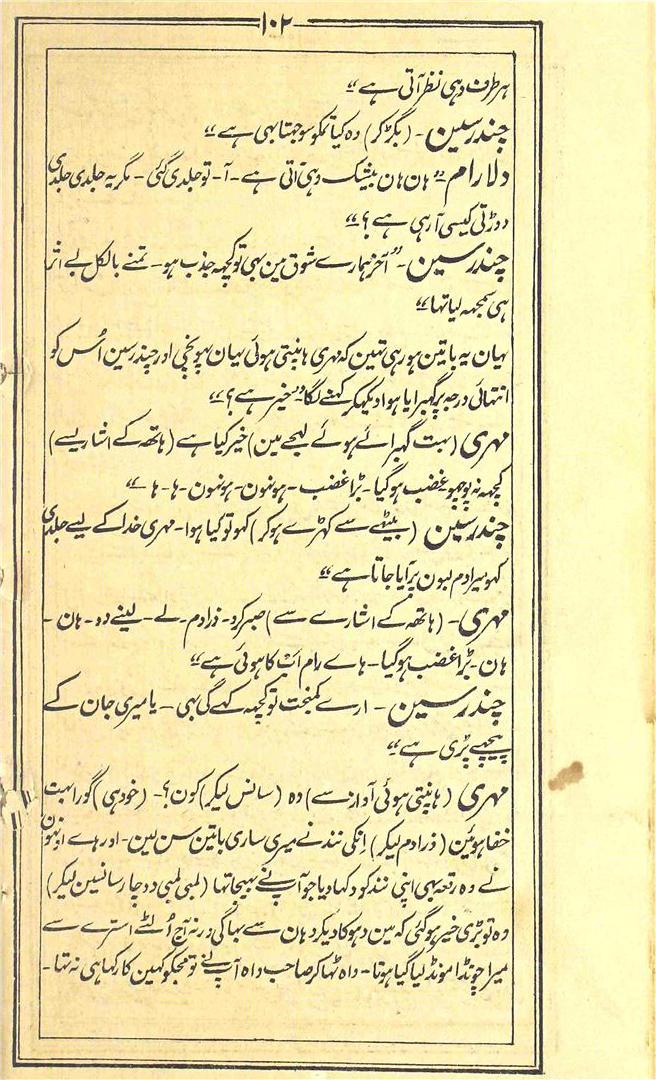 ۱۰۲
ہر طرف وہی نظر آتی ہے“
چندرسین - (بگڑکر) وہ کیا تمکو سوجہتا بہی ہے“
دلارام ”ہان ہان بیشک وہی آتی ہے - آ - تو جلدی گئی - مگر یہ جلدی جلدی
دوڑتی کیسی آرہی ہے؟“
چندرسین - ”آخر ہمارے شوق مین بہی تو کچہہ جذب ہو - تمنے بالکل بے اثر
ہی سمجہہ لیا تہا“
یہان یہ باتین ہو رہی تہین کہ مہری ہانپتی ہوئی یہان پہونچی اور چندرسین اُس کو
انتہائی درجہ پر گہبرایا ہوا دیکہکر کہنے لگا ”خیر ہے؟“
مہری (بہت گہبرائے ہوئے لہجے مین) خیر کیا ہے (ہاتھہ کے اشارے سے)
کچہہ نہ پوچہو غضب ہو گیا - بڑا غضب - ہونہون - ہونہون - ہا - ہا“
چندرسین (بیٹھے سے کہڑے ہوکر) کہو تو کیا ہوا - مہری خدا کے لیے جلدی
کہو میرا دم لبون پر آیا جاتا ہے“
مہری - (ہاتھہ کے اشارے سے) صبر کرو - ذرا دم - لے - لینے دو - ہان -
ہان - بڑا غضب ہو گیا - ہاے رام اب کا ہوئی ہے“
چندرسین - ارے کمبخت تو کچہہ کہے گی بہی - یا میری جان کے
پیچہے پڑی ہے“
مہری (ہانپتی ہوئی آواز سے) وہ (سانس لیکر) کون؟ - (خود ہی) گورا بہت
خفا ہوئین (ذرا دم لیکر) اِنکی نند نے میری ساری باتین سن لین - اور ہاے انہون
نے وہ رقعہ بہی اپنی نند کو دکہا دیا جو آپ نے بہیجا تہا (لمبی لمبی دو چار سانسین لیکر)
وہ تو بڑی خیر ہو گئی کہ مین دہوکا دیکر وہان سے بہاگی ورنہ آج اُلٹے استرے سے
میرا چونڈا مونڈ لیا گیا ہوتا - واہ ٹہاکر صاحب واہ آپ نے تو مجکو کہین کا رکہا ہی نہ تہا -